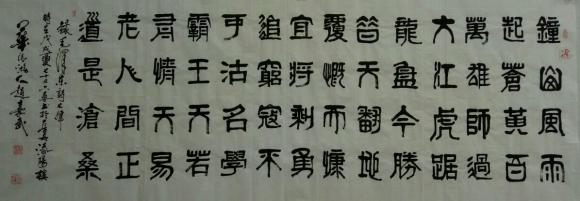 鐘山風雨
起蒼黃百
萬雄師過
大江虎踞
龍盤今勝
昔天翻地
覆慨而慷
宜將剩勇
追窮寇不
可沽名學
霸王天若
有情天亦
老人間正
道是滄桑
錄毛澤東詩七律